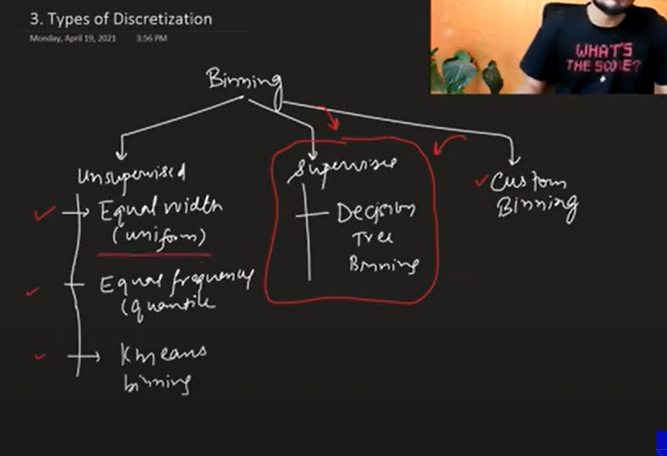 3. Types of Discretization
Monday, April 19, 2021 3:56 PM
WHAT'S
THE SCORE?
Binning
Unsupervised
Equal width
(uniform)
Equal frequency
(quantile
Kmeans
binning
Supervise
Decision
Tree
Binning
Custom
Binning